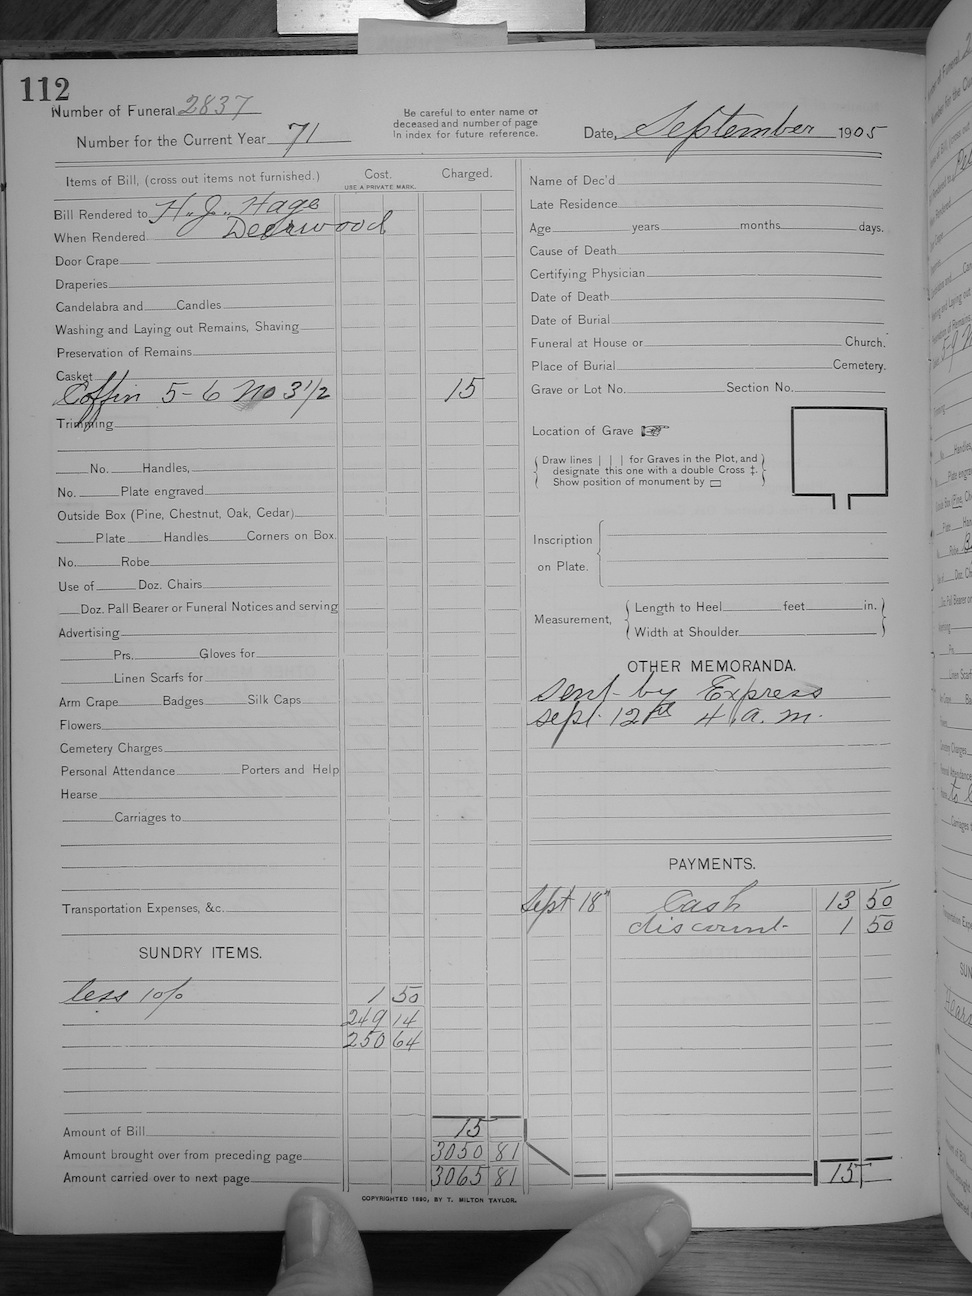 112
Number of Funeral 2837
Number for the Current Year 71
Be careful to enter name of
deceased and number of page
in index for future reference.
Date, September 1905
Items of Bill, (cross out items not furnished.) Cost. Charged.
USE A PRIVATE MARK.
Bill Rendered to H. J. Hage
When Rendered Deerwood
Door Crape
Draperies
Candelabra and Candles
Washing and Laying out Remains, Shaving
Preservation of Remains
Casket
Coffin 5-6 No 3 1/2 15
Trimming
No. Handles,
No. Plate engraved
Outside Box (Pine, Chestnut, Oak, Cedar)
Plate Handles Corners on Box.
No. Robe
Use of Doz. Chairs
Doz. Pall Bearer or Funeral Notices and serving
Advertising
Prs. Gloves for
Linen Scarfs for
Arm Crape Badges Silk Caps
Flowers
Cemetery Charges
Personal Attendance Porters and Help
Hearse
Carriages to
Transportation Expenses, &c.
SUNDRY ITEMS.
less 10% 1 50
249 14
250 64
Amount of Bill 15
Amount brought over from preceding page 3050 81
Amount carried over to next page 3065 81
Name of Dec'd
Late Residence
Age years months days.
Cause of Death
Certifying Physician
Date of Death
Date of Burial
Funeral at House or Church.
Place of Burial Cemetery.
Grave or Lot No. Section No.
Location of Grave
Draw lines | | | for Graves in the Plot, and
designate this one with a double Cross ‡.
Show position of monument by
Inscription
on Plate.
Measurement, Length to Heel feet in.
Width at Shoulder
OTHER MEMORANDA.
sent by Express
sept. 12th 4 a. m.
PAYMENTS.
Sept 18" Cash 13 50
discount 1 50
15
COPYRIGHTED 1890, BY T. MILTON TAYLOR.